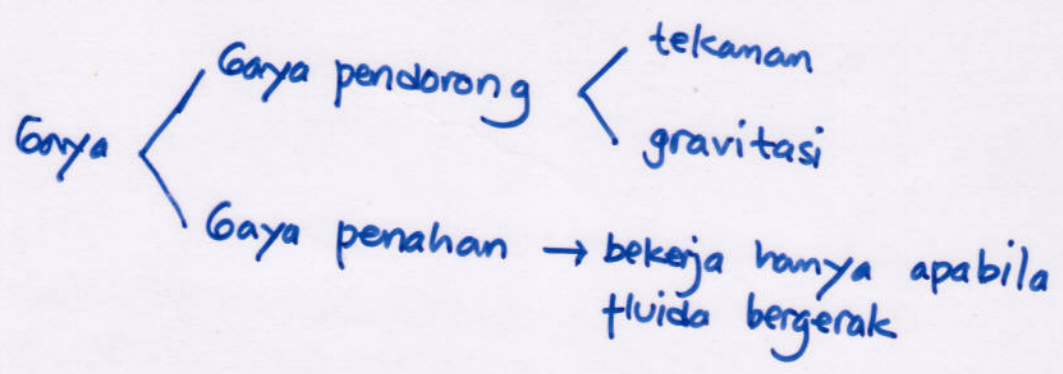 Gaya
Gaya pendorong
tekanan
gravitasi
Gaya penahan → bekerja hanya apabila
fluida bergerak